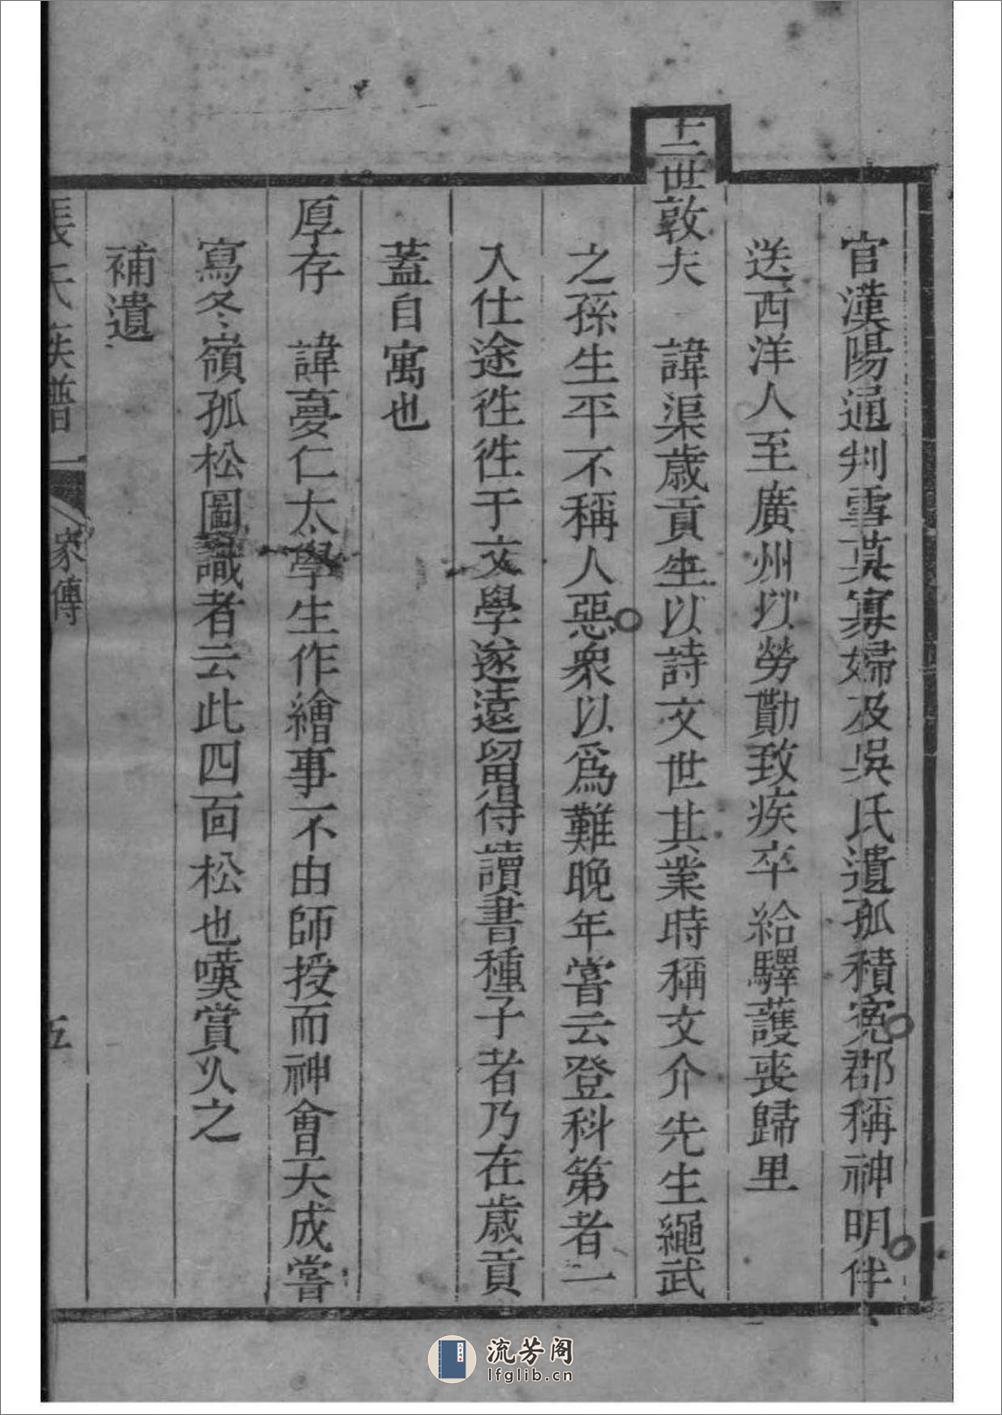 官漢陽通判雪莫寡婦及吳氏遺孤積寃郡稱神明伴
送西洋人至廣州以勞勩致疾卒給驛護喪歸里
十二世敦夫　諱渠歲貢生以詩文世其業時稱文介先生繩武
之孫生平不稱人惡衆以爲難晚年嘗云登科第者一
入仕途徃徃于文學遂遠留得讀書種子者乃在歲貢
蓋自寓也
厚存　諱憂仁太學生作繪事不由師授而神會天成嘗
寫冬嶺孤松圖識者云此四面松也嘆賞久之
補遺
張氏族譜一　家傳　五
流芳阁
lfglib.cn